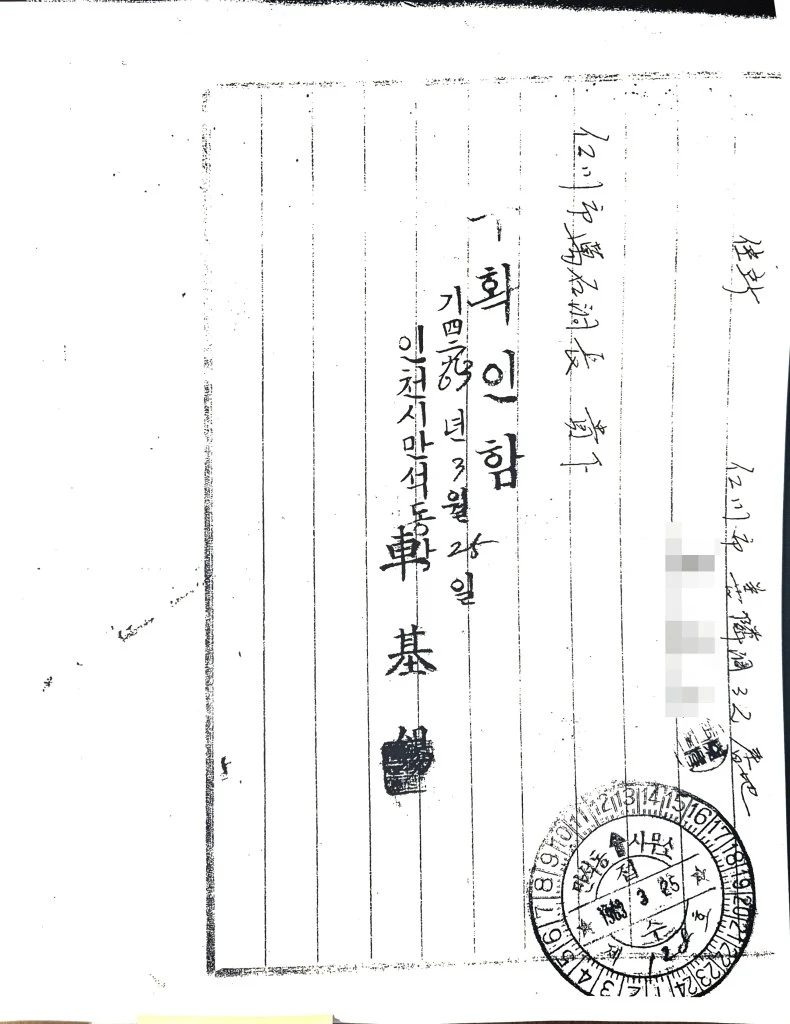 住所 仁川市 善隣洞 32 番地
仁川市 萬石洞長 貴下
확인함
년 3월 25일
인천시만석동장
車基錫
만석동 사무소
접수
1963 3 25
제 128 호
1 2 3 4 5 6 7 8 9 10 11 12 13 14 15 16 17 18 19 20 21 22 23 24